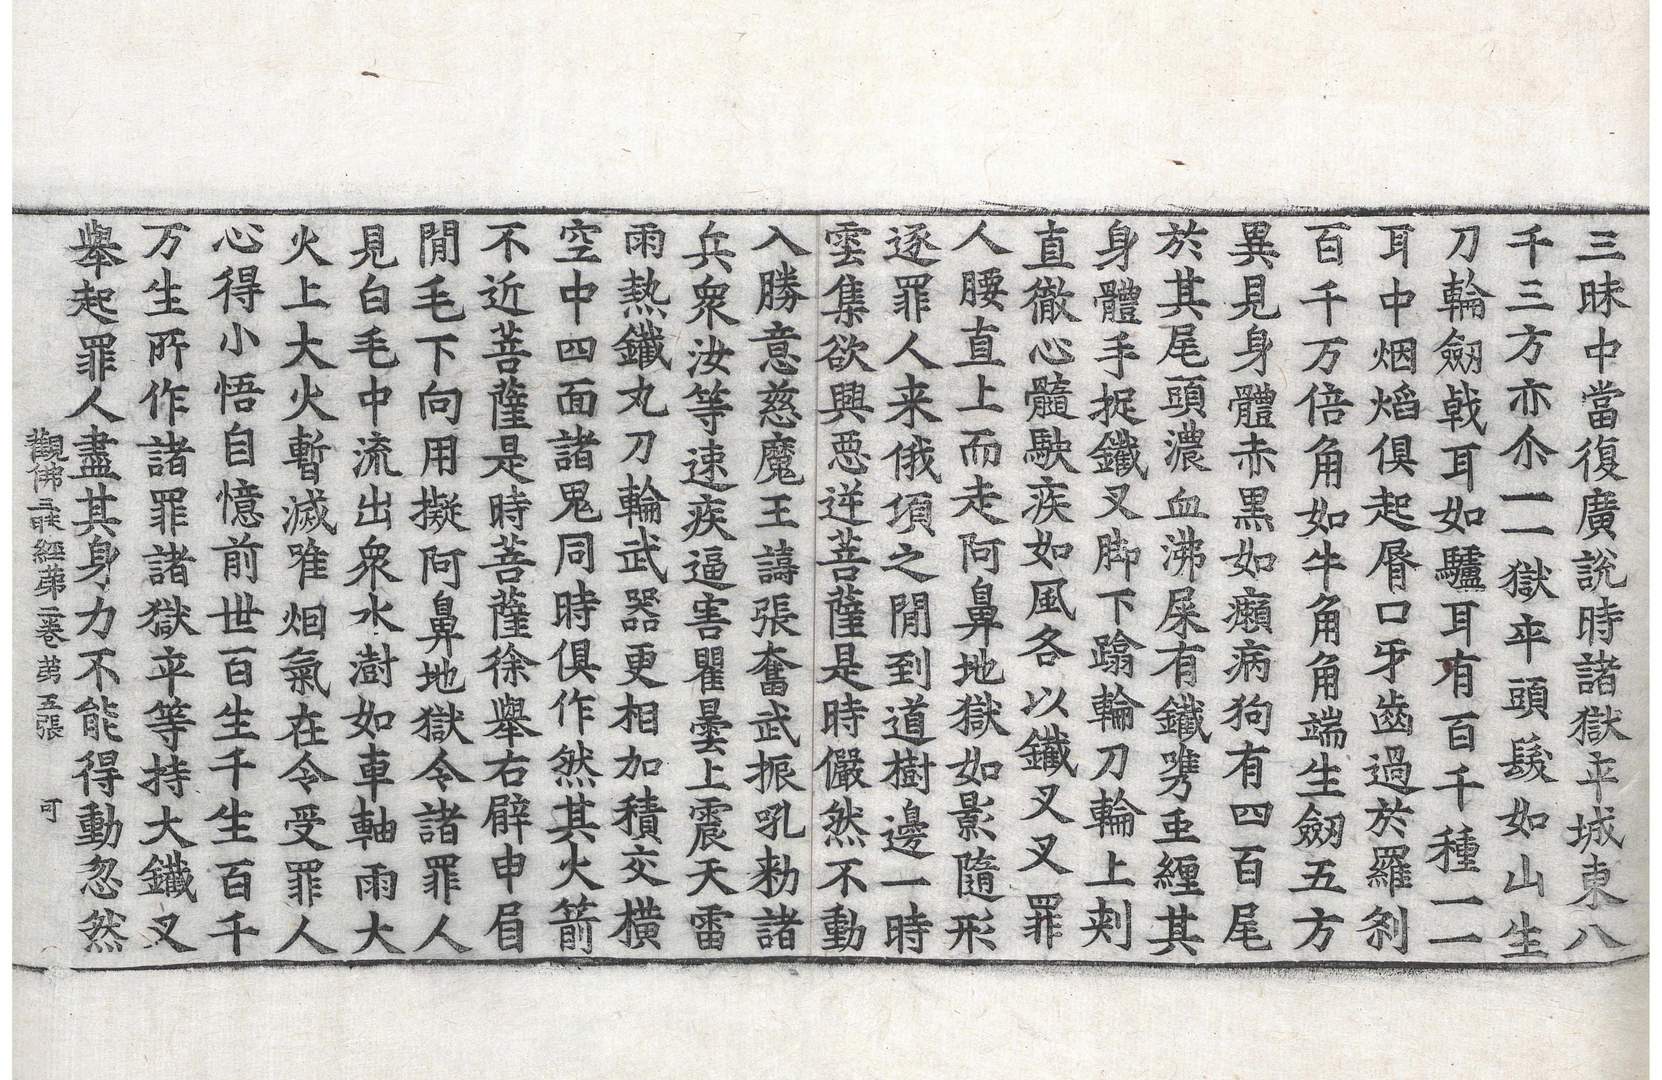 三昧中當復廣說時諸獄卒城東八
千三方亦尒一一獄卒頭髮如山生
刀輪劒戟耳如驢耳有百千種一一
耳中烟焰俱起脣口牙齒過於羅刹
百千万倍角如牛角角端生劒五方
異見身體赤黑如癩病狗有四百尾
於其尾頭濃血沸屎有鐵㭰垂纏其
身體手捉鐵叉脚下蹹輪刀輪上刾
直徹心髓駃疾如風各以鐵叉叉罪
人腰直上而走阿鼻地獄如影隨形
逐罪人来俄頃之閒到道樹邊一時
雲集欲興惡逆菩薩是時儼然不動
入勝意慈魔王譸張奮武振吼勑諸
兵衆汝等速疾逼害瞿曇上震天雷
雨熱鐵丸刀輪武器更相加積交橫
空中四面諸鬼同時俱作然其火箭
不近菩薩是時菩薩徐舉右臂申眉
閒毛下向用擬阿鼻地獄令諸罪人
見白毛中流出衆水澍如車軸雨大
火上大火暫滅唯烟氣在令受罪人
心得小悟自憶前世百生千生百千
万生所作諸罪諸獄卒等持大鐵叉
舉起罪人盡其身力不能得動忽然
觀佛三昧經第二卷 第五張 可